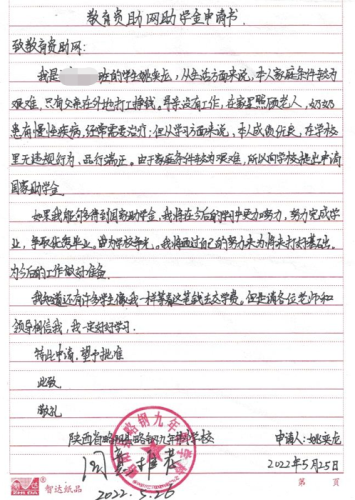 教育资助网助学金申请书
致教育资助网：
我是 班的学生姚奕龙，从生活方面来说，本人家庭条件较为
艰难，只有父亲在外地打工挣钱，母亲没有工作，在家里照顾老人，奶奶
患有慢性疾病，经常需要治疗；但从学习方面来说，本人成绩优良，在学校
里无违规行为，品行端正。由于家庭条件较为艰难，所以向学校提出申请
国家助学金。
如果我能够得到国家助学金，我将在今后的学习中更加努力，努力完成学
业，争取优秀毕业。为学校争光。我将通过自己的努力来为将来打好基础。
为今后的工作做好准备。
我知道还有许多学生像我一样等着这笔钱去交学费。但是请各位老师和
领导相信我，我一定好好学习。
特此申请，望予批准
此致
敬礼
陕西省略阳县略钢九年制学校
申请人：姚奕龙
2022年5月25日
2022.5.26
智达纸品
第 页